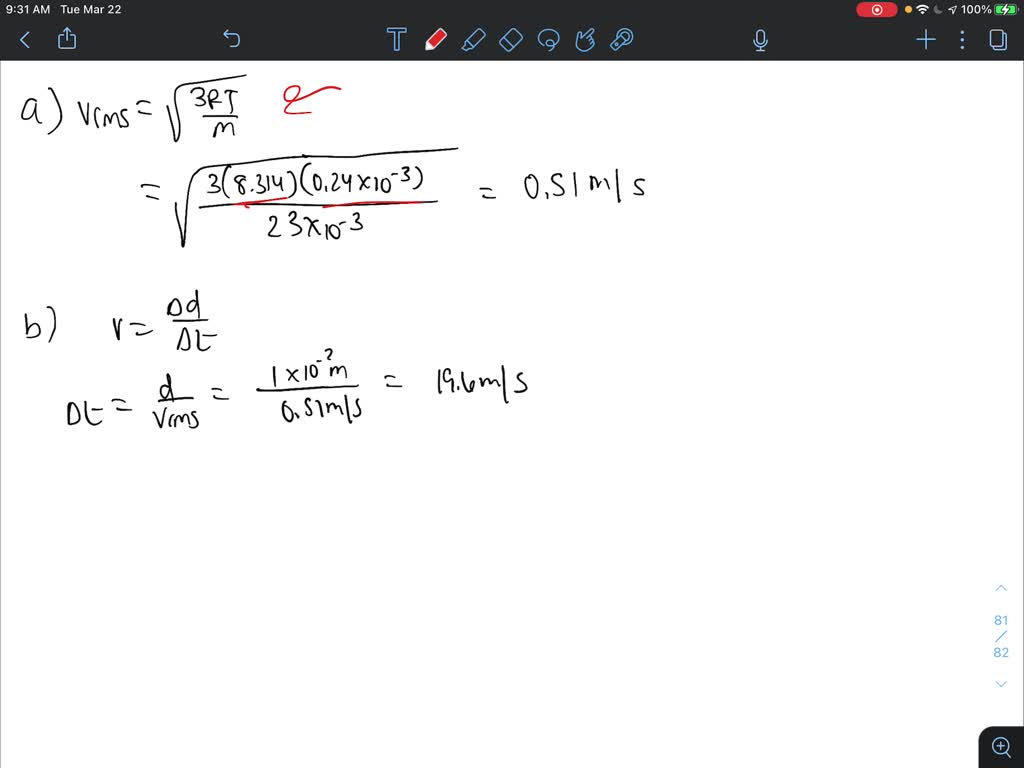 9:31 AM Tue Mar 22 100%
a) Vrms = √(3RT/m)
= √(3(8.314)(0.24×10⁻³)/23×10⁻³) = 0.51 m/s
b) v = Δd/Δt
Δt = d/Vrms = 1×10⁻² m/0.51 m/s = 19.6 m/s
81
/
82